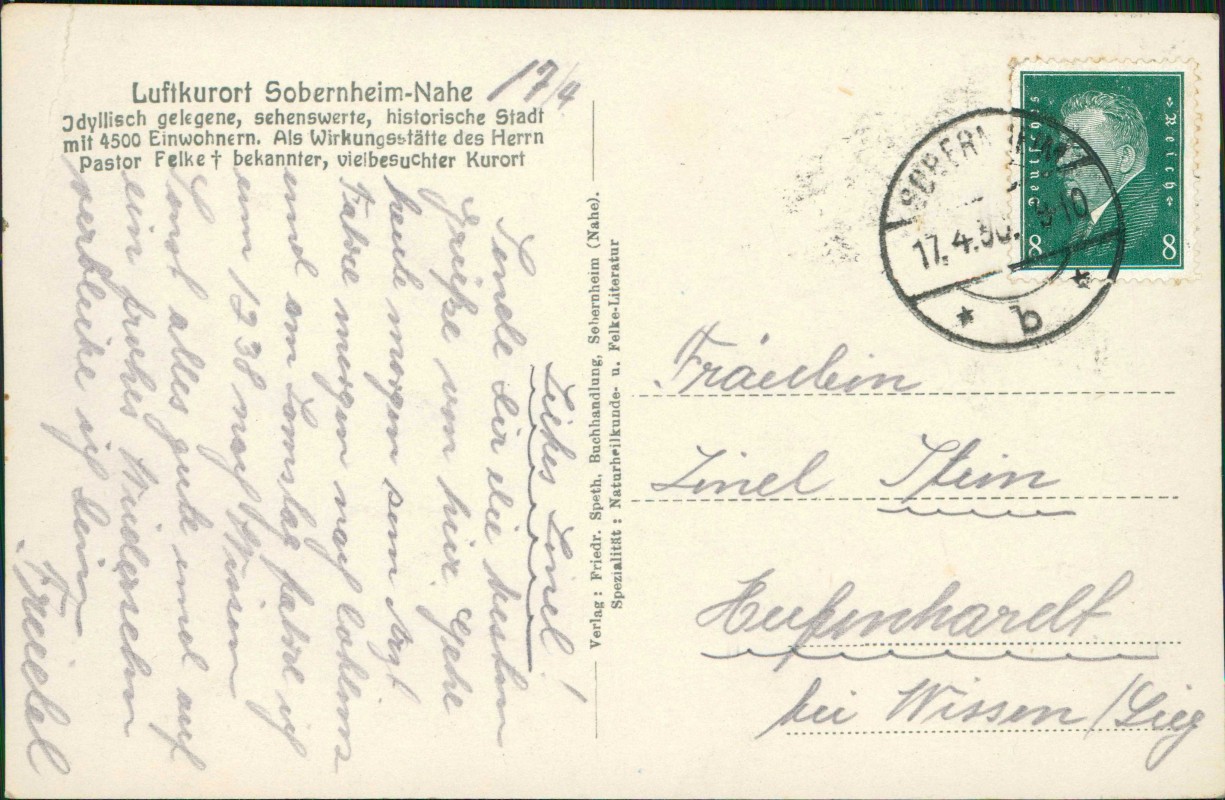 Luftkurort Sobernheim-Nahe
Idyllisch gelegene, sehenswerte, historische Stadt
mit 4500 Einwohnern. Als Wirkungsstätte des Herrn
Pastor Felke † bekannter, vielbesuchter Kurort
17/4
Liebes Linel!
Sende dir die besten
Grüße von hier. Gehe
heute morgen zum Arzt
Fahre morgen nach Cochem
und am Samstag fahre ich
um 12 38 nach Wissen
Sonst alles gute und auf
ein frohes Wiedersehn
verbleibe ich Dein
Friedel
Verlag: Friedr. Speth, Buchhandlung, Sobernheim (Nahe).
Spezialität: Naturheilkunde- u. Felke-Literatur
Deutsches Reich
8 8
SOBERNHEIM
17.4.30. 9-10
* b *
Fräulein
Linel Stein
bei Wissen/Sieg